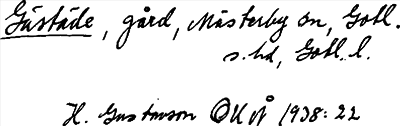 Gåståde, gård, Mästerby sn, Gotl.
s. hd, Gotl. l.
H. Gustavson OUÅ 1938: 22